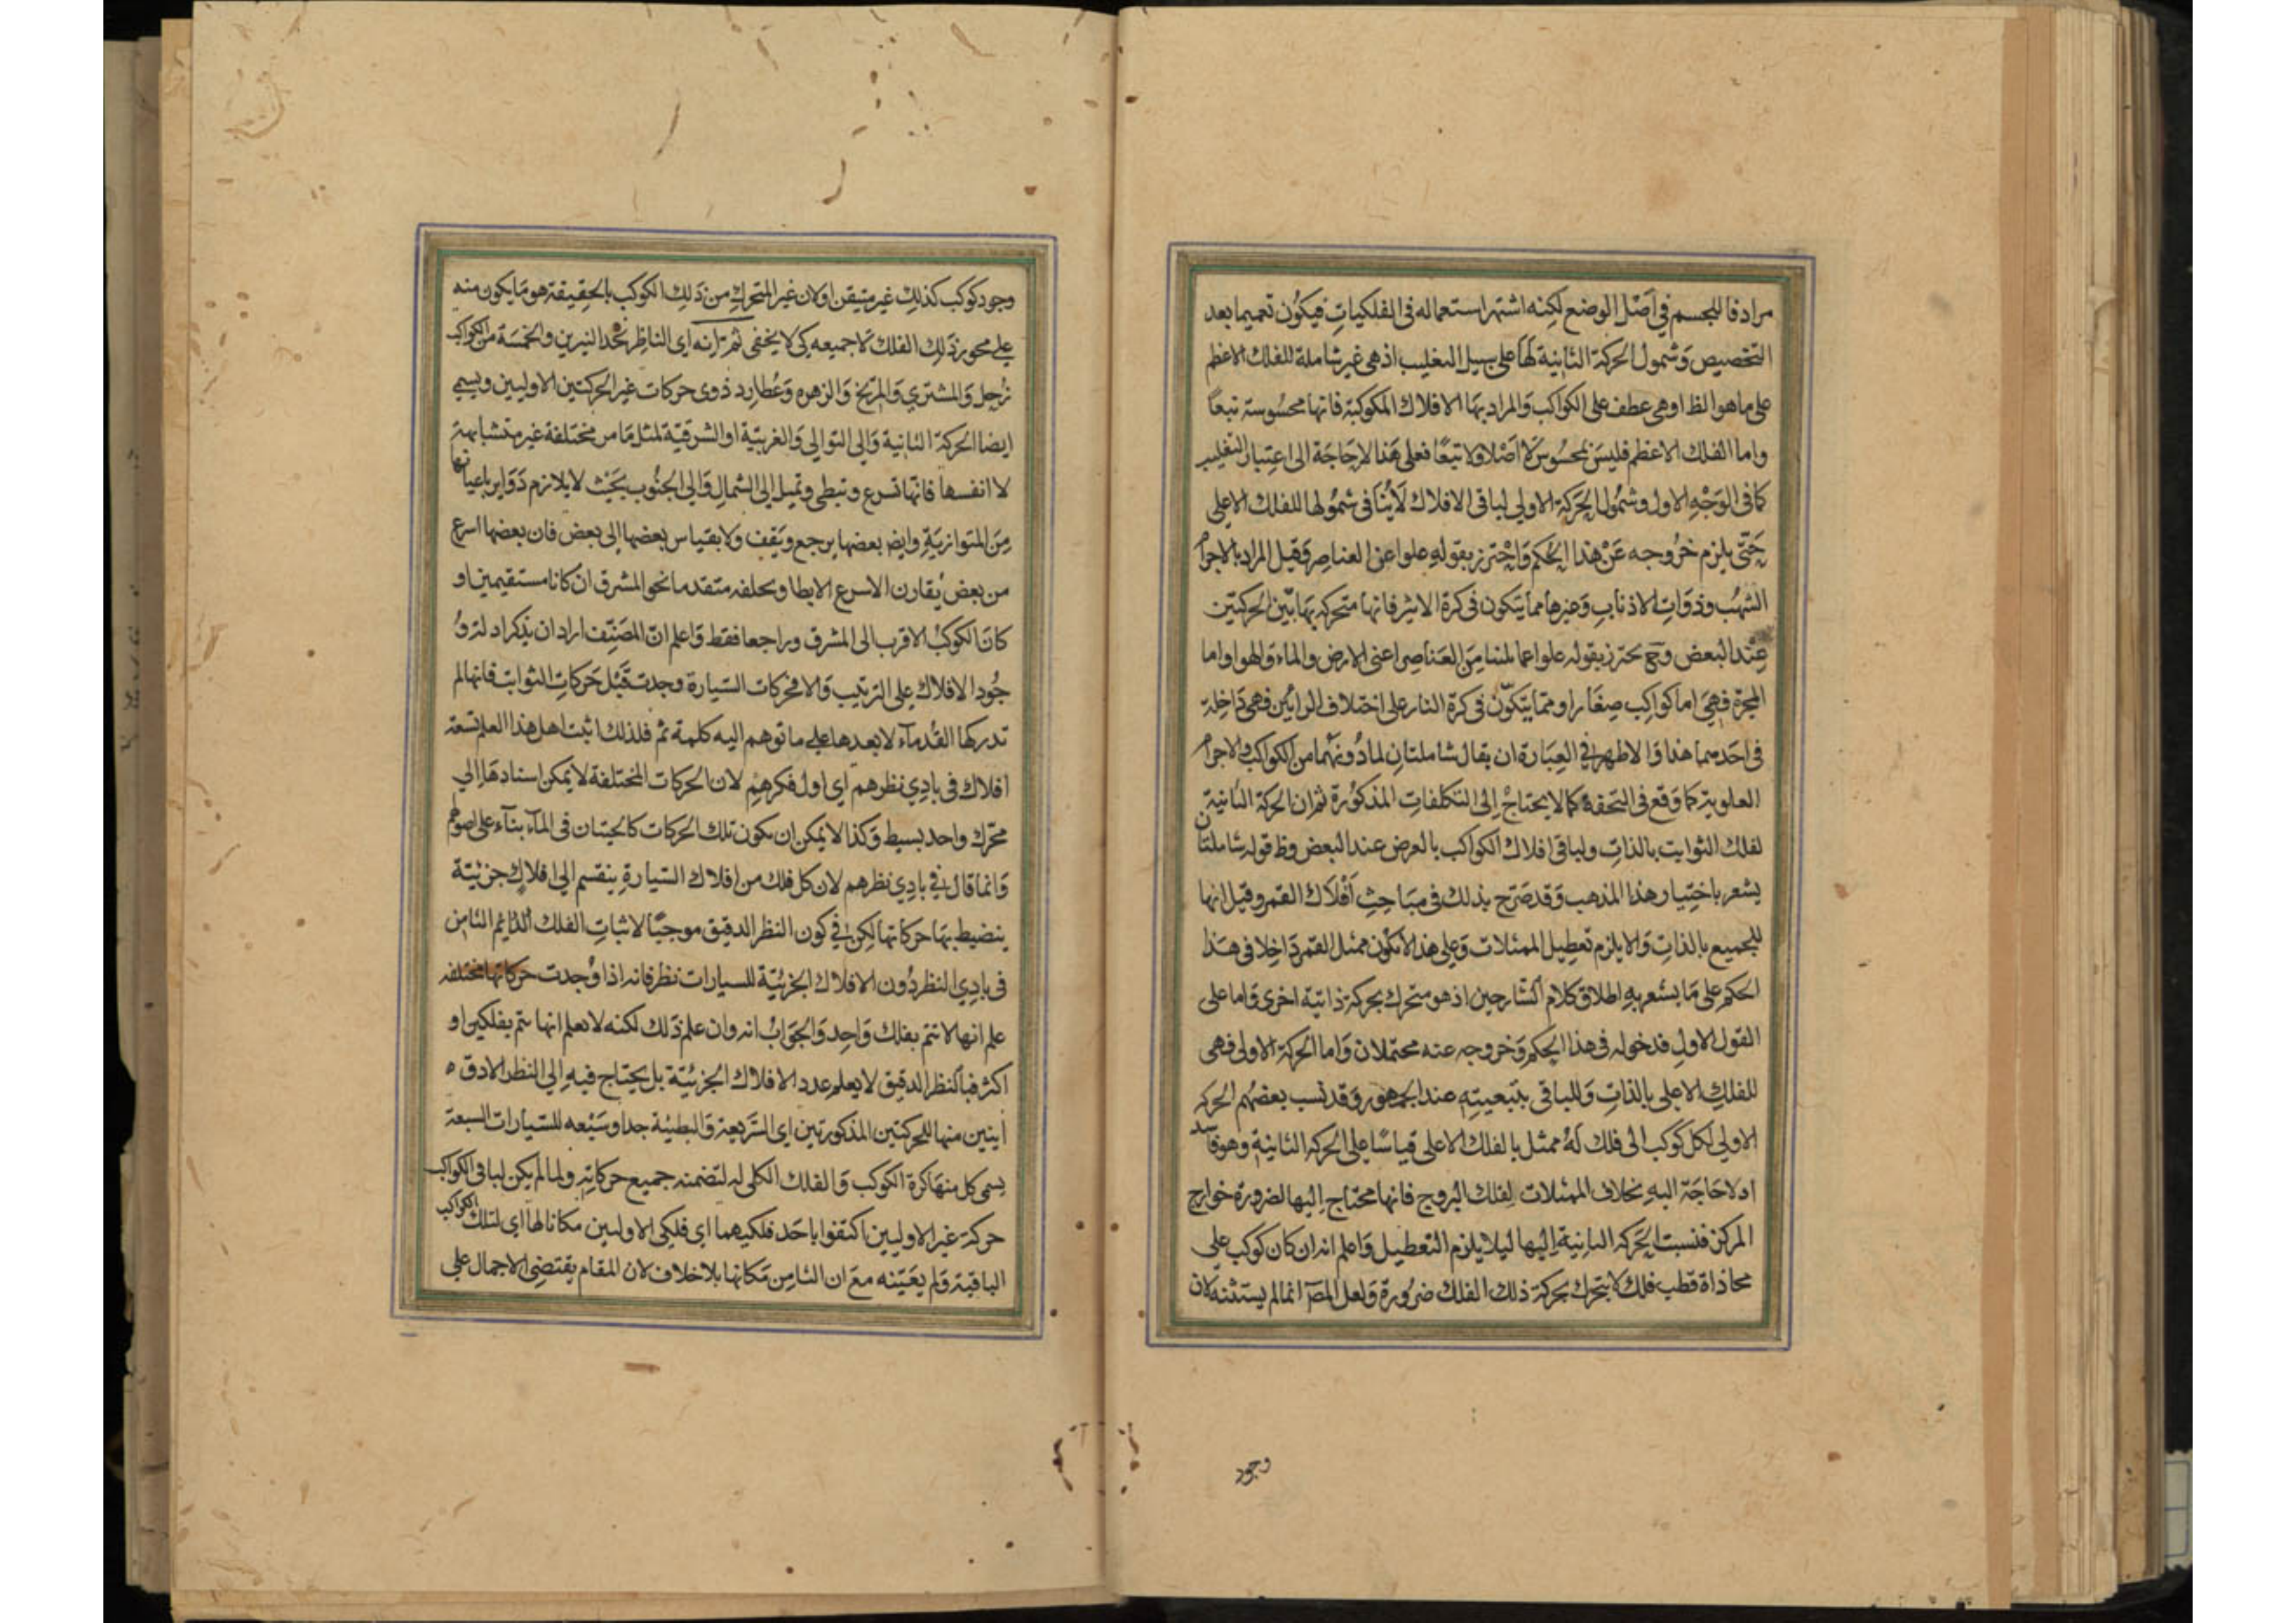 مرادفا للجسم في اصل الوضع لكنه اشتهر استعماله فى الفلكيات فيكون تعميما بعد
التخصيص وشمول الحركة الثانية لها على سبيل التغليب اذ هى غير شاملة للفلك الاعظم
على ما هو الظ او هى عطف على الكواكب والمراد بها الافلاك المكوكبة فانها محسوسة تبعاً
واما الفلك الاعظم فليس بمحسوس لا اصلا ولا تبعًا فعلى هذا لا حاجة الى اعتبار التغليب
كما فى الوجه الاول وشمول الحركة الاولى لباقى الافلاك لا ينافى شمولها للفلك الاعلى
حتى يلزم خروجه عن هذا الحكم واحترز بقوله علوا عن العناصر وقيل المراد بالاجرام
الشهب وذوات الاذناب وغيرها مما يتكون فى كرة الاثير فانها متحركة بهاتين الحركتين
عند البعض وح يحترز بقوله علوا عما لمتنا من العناصر اعنى الارض والماء والهوا واما
المجرة فهى اما كواكب صغار او مما يتكون فى كرة النار على اختلاف الرائين فهى داخلة
فى احدهما هذا والاظهر فى العبارة ان يقال شاملتان لما دونهما من الكواكب والاجرام
العلوية كما وقع فى التحفة كما لا يحتاج الى التكلفات المذكورة ثم ان الحركة الثانية
لفلك الثوابت بالذات ولباقى افلاك الكواكب بالعرض عند البعض وظ قوله شاملتان
يشعر باختيار هذا المذهب وقد صرح بذلك فى مباحث افلاك القمر وقيل انها
للجميع بالذات والا يلزم تعطيل الممثلات وعلى هذا لا يكون ممثل القمر داخلا فى هذا
الحكم على ما يشعر به اطلاق كلام الشارحين اذ هو متحرك بحركة ذاتية اخرى واما على
القول الاول فدخوله فى هذا الحكم وخروجه عنه محتملان واما الحركة الاولى فهى
للفلك الاعلى بالذات وللباقى بتبعيته عند الجمهور وقد نسب بعضهم الحركة
الاولى لكل كوكب الى فلك له ممثل بالفلك الاعلى قياسًا على الحركة الثانية وهو فاسد
اذ لا حاجة اليه بخلاف الممثلات لفلك البروج فانها محتاج اليها لضرورة خوارج
المركز فنسبت الحركة الثانية اليها ليلا يلزم التعطيل واعلم انه ان كان كوكب على
محاذاة قطب فلك لا يتحرك بحركة ذلك الفلك ضرورة ولعل المصـ انما لم يستثنه لان
وجود
وجود كوكب كذلك غير متيقن او لان غير المتحرك من ذلك الكوكب بالحقيقة هو ما يكون منه
على محور ذلك الفلك لا جميعه كى لا يخفى ثم انه اى الناظر نحد النيرين والخمسة من الكواكب
زحل والمشترى والمريخ والزهره وعطارد ذوى حركات غير الحركتين الاوليين ويسمى
ايضا الحركة الثانية والى التوالى والغربية او الشرقية لمثل ما مر مختلفة غير متشابهة
لا انفسها فانها تسرع وتبطى وتميل الى الشمال والى الجنوب بحيث لا يلازم دواير باعيانها
من المتوازية وايض بعضها يرجع ويقف ولا بقياس بعضها الى بعض فان بعضها اسرع
من بعض يقارن الاسرع الابطا ويخلفه متقدما نحو المشرق ان كانا مستقيمين او
كان الكوكب الاقرب الى المشرق وراجعا فقط واعلم ان المصنف اراد ان يذكر ادلة و
جود الافلاك على الترتيب والا فحركات السيارة وجدت قبل حركات الثوابت فانها لم
تدركها القدماء لا بعدها على ما توهم اليه كلمة ثم فلذلك اثبت اهل هذا العلم تسعة
افلاك فى بادى نظرهم اى اول فكرهم لان الحركات المختلفة لا يمكن اسنادها الى
محرك واحد بسيط وكذا لا يمكن ان يكون تلك الحركات كالحيتان فى الماء بناء على اصولهم
وانما قال فى بادى نظرهم لان كل فلك من افلاك السيارة ينقسم الى افلاك جزئية
ينضبط بها حركاتها لكن فى كون النظر الدقيق موجبًا لاثبات الفلك الثامن
فى بادى النظر دون الافلاك الجزئية للسيارات نظر فانه اذا وجدت حركاتها مختلفه
علم انها لا تتم بفلك واحد والجواب انه وان علم ذلك لكنه لا يعلم انها يتم بفلكين او
اكثر فبالنظر الدقيق لا يعلم عدد الافلاك الجزئية بل يحتاج فيه الى النظر الادق ه
اثنين منها للحركتين المذكورتين اى السريعة والبطيئة جدا وسبعه للسيارات السبعة
يسمى كل منها كرة الكوكب والفلك الكلى له لتضمنه جميع حركاته ولما لم يكن لباقى الكواكب
حركة غير الاوليين اكتفوا باحد فلكيهما اى فلكى الاوليين مكانا لها اى لتلك الكواكب
الباقية ولم يعينه مع ان الثامن مكانها بلا خلاف لان المقام يقتضى الاجمال على